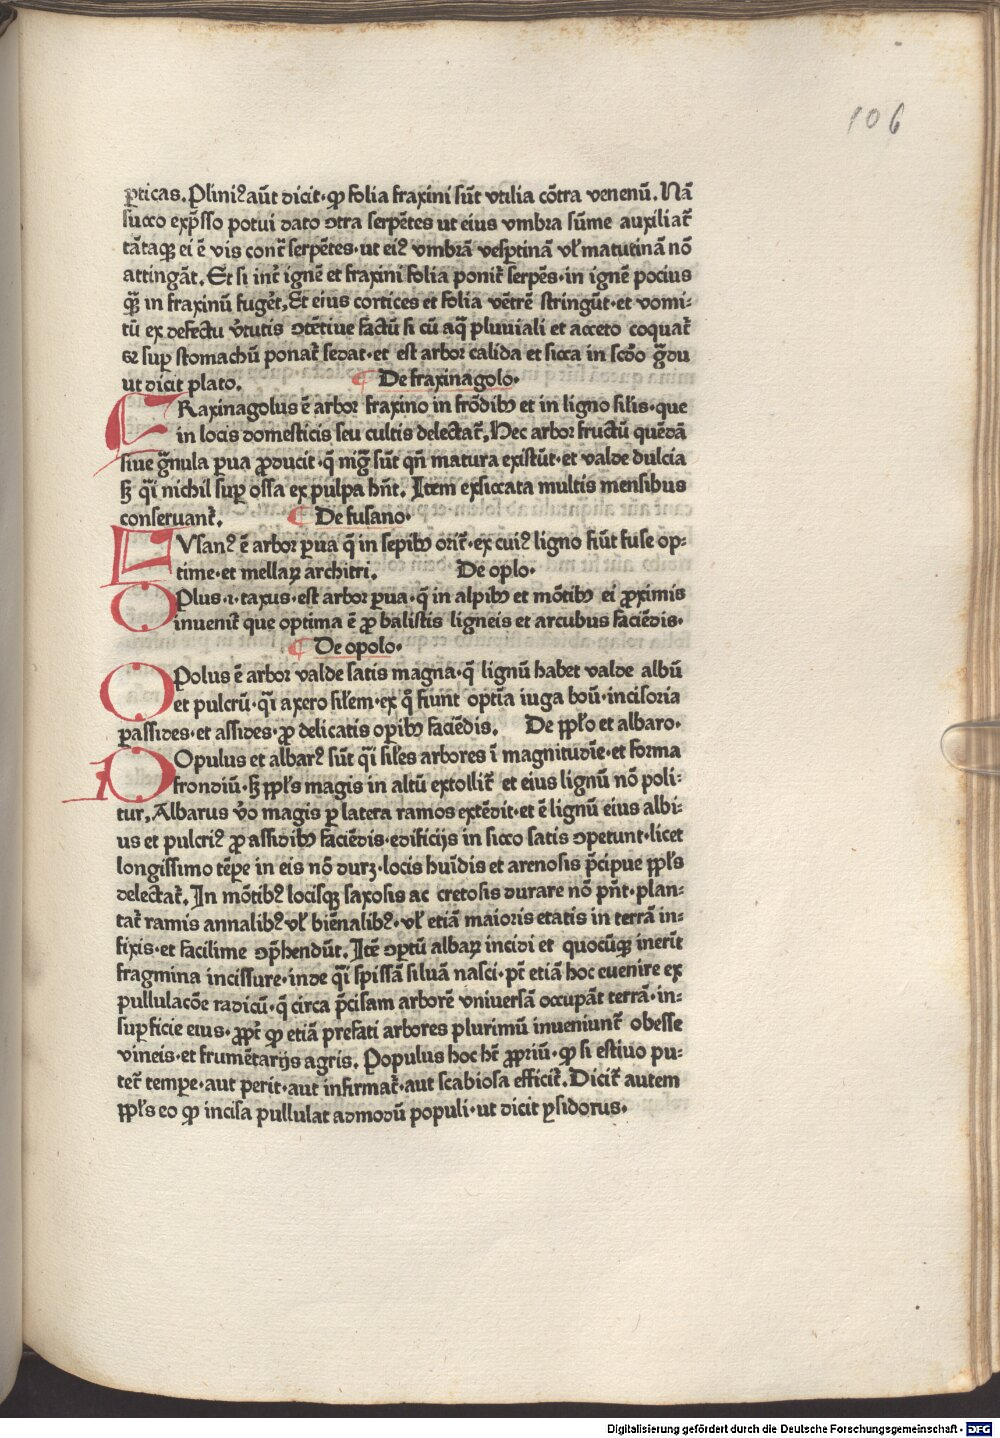 106
ꝑticas. Pliniꝰ aūt dicit· ꝙ folia fraxini sūt vtilia cōtra venenū. Nā
succo exp̄sso potui dato ꝯtra serpētes ut eius vmbra sūme auxiliat᷑
tātaqꝫ ei ē vis cont᷑ serpētes· ut eiꝰ vmbrā vesꝑtinā vl̕ matutinā nō
attingāt. Et si int᷑ ignē et fraxini folia ponit᷑ serpēs· in ignē pocius
qꝫ̄ in fraxinū fuget᷑. Et eius cortices et folia vētrē stringūt· et vomi⸗
tū ex defectu v̓tutis ꝯtētiue factū si cū aq̄ pluuiali et acceto coquat᷑
⁊ suꝑ stomachū ponat᷑ sedat· et est arbor calida et sicca in scd̄o ḡdu
ut dicit plato. De fraxinagolo·
FRaxinagolus ē arbor fraxino in frōdibꝰ et in ligno silis· que
in locis domesticis seu cultis delectat᷑. Hec arbor fructū quēdā
siue ḡnula ꝑua ꝓducit· q̄ niḡ sūt qn̄ matura existūt· et valde dulcia
sꝫ q̄i nichil suꝑ ossa ex pulpa hn̄t. Item exsiccata multis mensibus
conseruant᷑. De fusano·
FVsanꝰ ē arbor ꝑua q̄ in sepibꝰ orit᷑· ex cuiꝰ ligno fiūt fuse op⸗
time· et mellaꝝ architri. De oplo·
OPlus ·i· taxus· est arbor ꝑua· q̄ in alpibꝰ et mōtibꝰ ei ꝓximis
inuenit᷑ que optima ē ꝓ balistis ligneis et arcubus faciēdis·
De opolo·
OPolus ē arbor valde satis magna· q̄ lignū habet valde albū
et pulcrū· q̄i axero sil̕em· ex q̄ fiunt optīa iuga boū· incisoria
passides· et assides· ꝓ delicatis opibꝰ faciēdis. De ppl̕o et albaro·
POpulus et albarꝰ sūt q̄i sil̕es arbores ī magnitudīe· et forma
frondiū· sꝫ ppl̕s magis in altū extollit᷑ et eius lignū nō poli⸗
tur. Albarus v̓o magis ꝑ latera ramos extēdit· et ē lignū eius albi⸗
us et pulcriꝰ ꝓ assidibꝰ faciēdis· edificijs in sicco satis ꝯpetunt· licet
longissimo tēpe in eis nō durꝫ· locis huīdis et arenosis p̄cipue ppl̕s
delectat᷑. In mōtibꝰ locisqꝫ saxosis ac cretosis durare nō pn̄t· plan⸗
tat᷑ ramis annalibꝰ vl̕ biēnalibꝰ· vl̕ etiā maioris etatis in terrā in⸗
fixis· et facilime ꝯp̄hendūt. Itē ꝯptū albaꝝ incidi et quocūqꝫ inerīt
fragmina incissure· inde q̄i spissā siluā nasci· pt̄ etiā hoc euenire ex
pullulacōe radicū· q̄ circa p̄cisam arborē vniuersā occupāt terrā· in⸗
suꝑficie eius· ꝓpt᷑ ꝙ etiā prefati arbores plurimū inueniunt᷑ obesse
vineis· et frumētarijs agris. Populus hoc ht̄ ꝓpriū· ꝙ si estiuo pu⸗
tet᷑ tempe· aut perit· aut infirmat᷑· aut scabiosa efficit᷑. Dicit᷑ autem
ppl̕s eo ꝙ incisa pullulat admodū populi· ut dicit ysidorus·
Digitalisierung gefördert durch die Deutsche Forschungsgemeinschaft - DFG